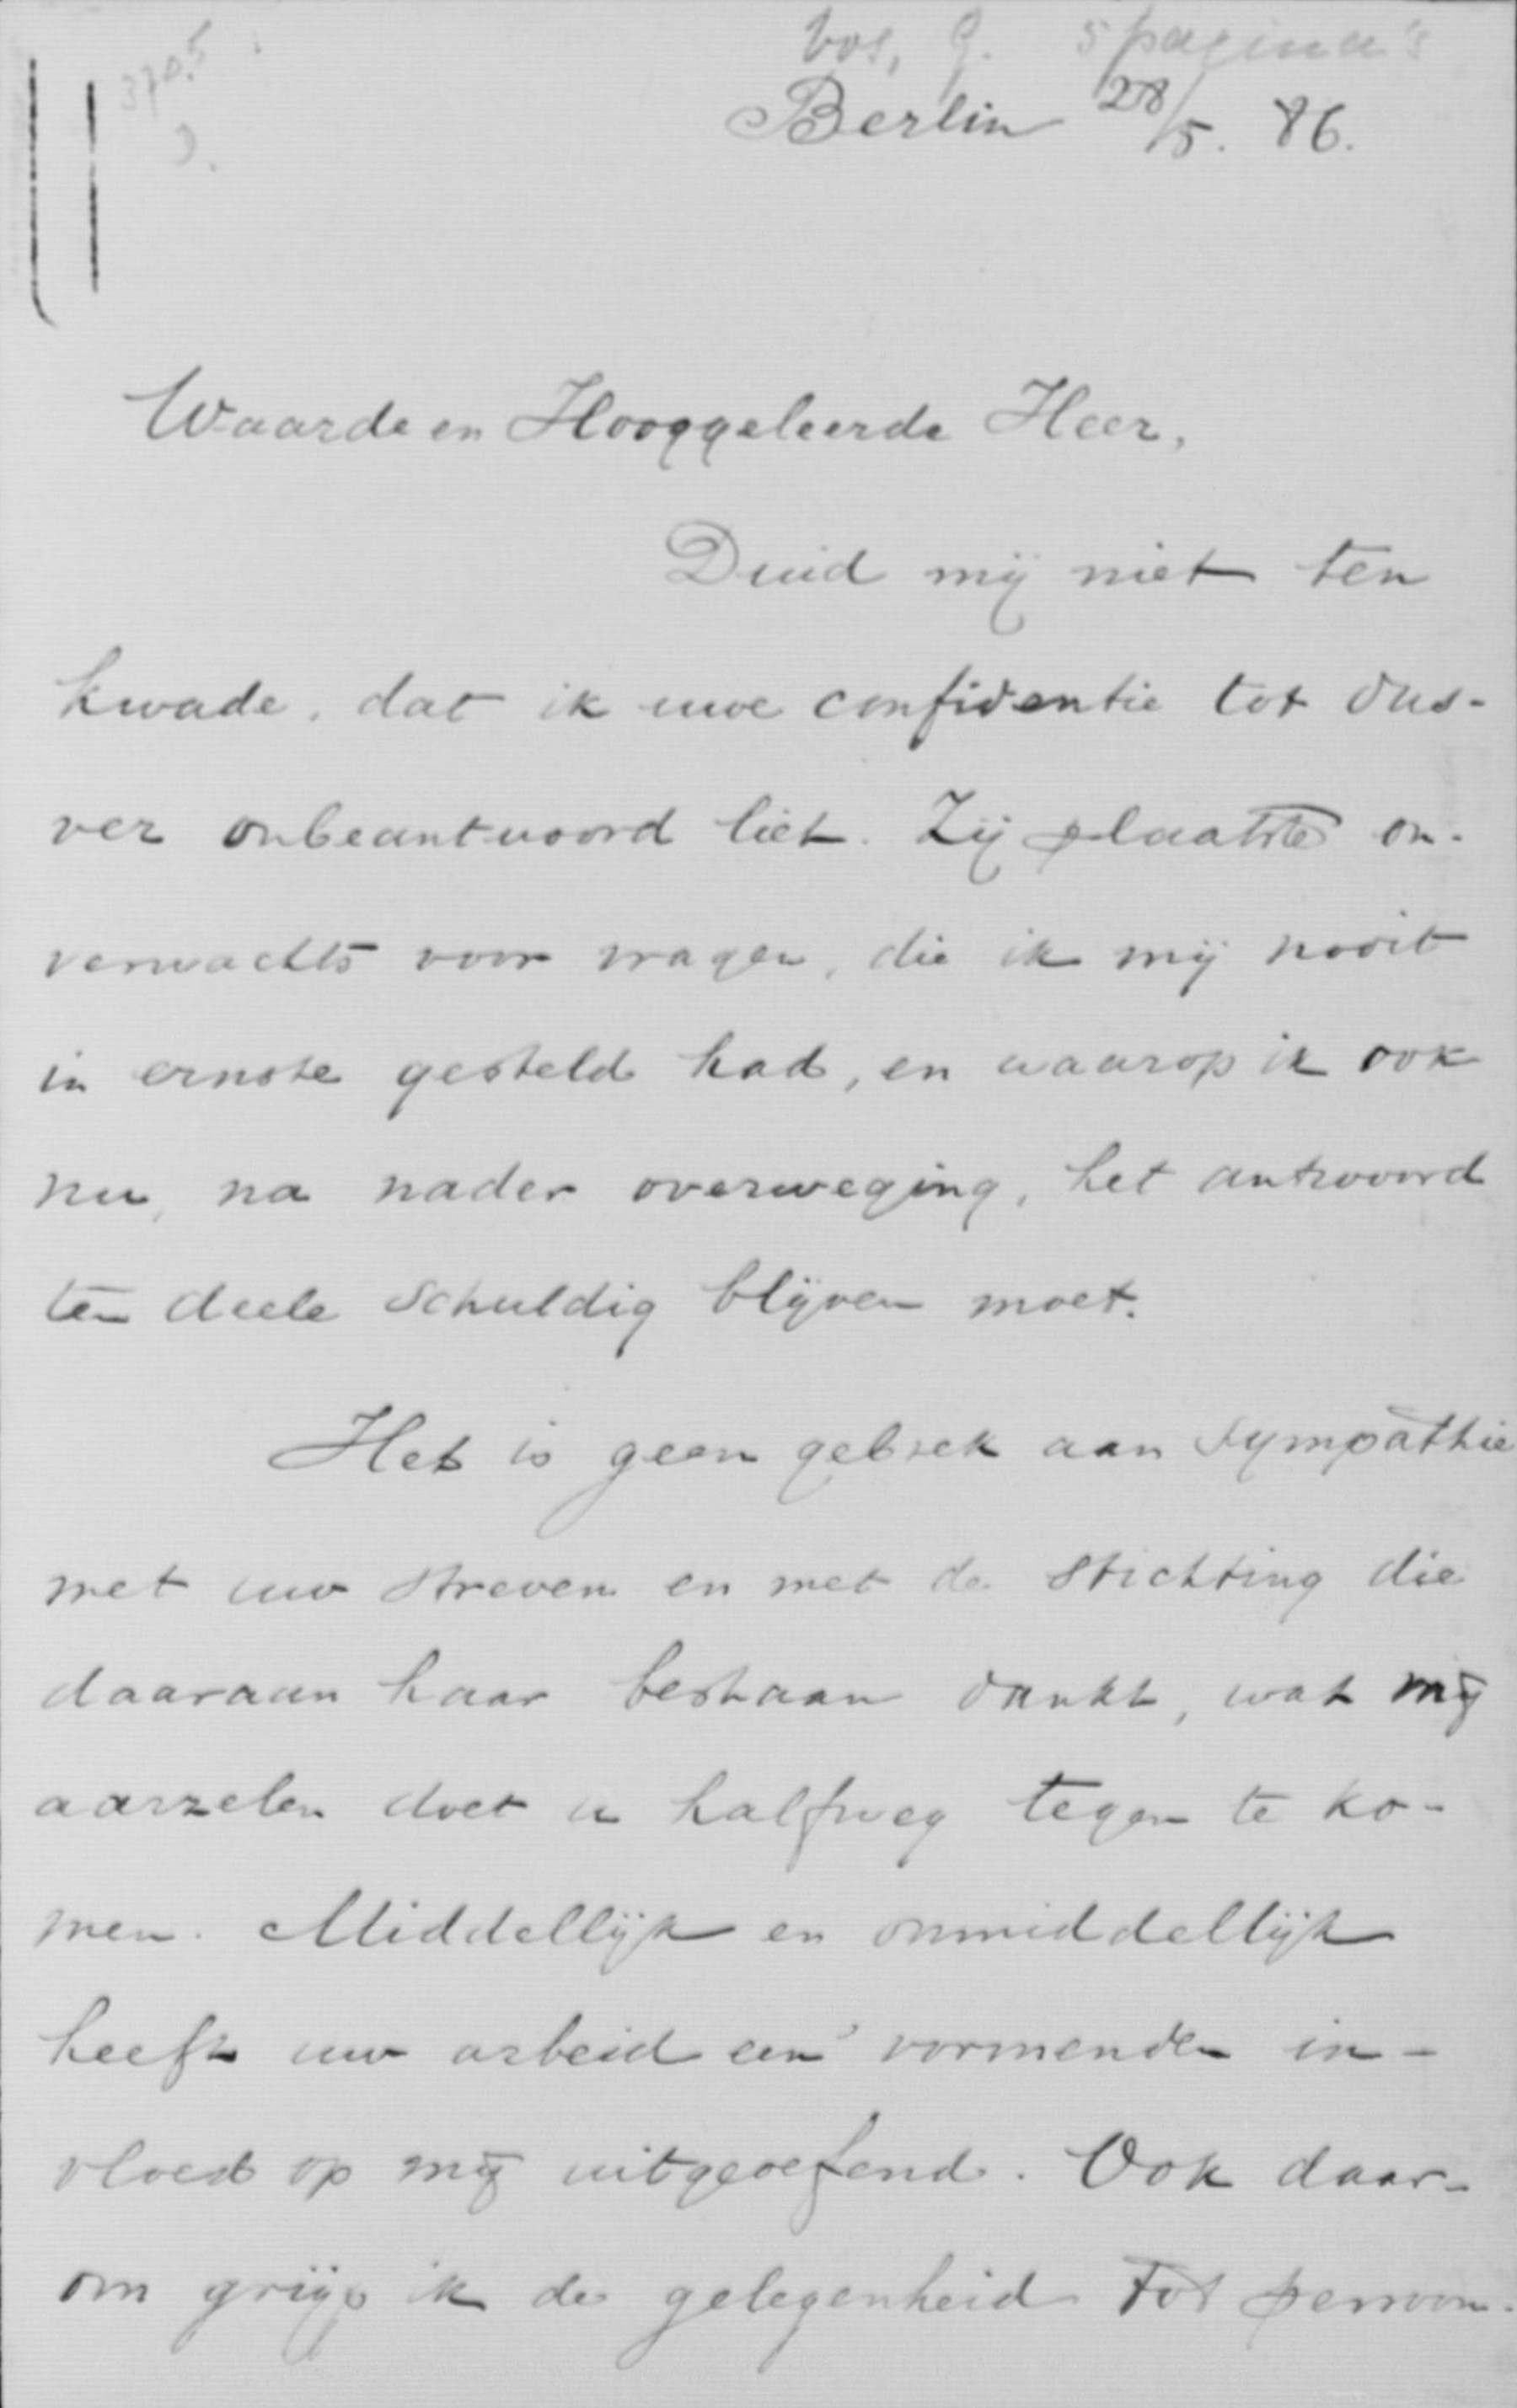 Vos, G. 5 pagina's
3705
Berlin 28/5. 86.
Waarde en Hooggeleerde Heer,
Duid mij niet ten
kwade, dat ik uwe confidentie tot dus-
ver onbeantwoord liet. Zij plaatste on-
verwachts voor vragen, die ik mij nooit
in ernste gesteld had, en waarop ik ook
nu, na nader overweging, het antwoord
ten deele schuldig blijven moet.
Het is geen gebrek aan sympathie
met uw streven en met de stichting die
daaraan haar bestaan dankt, wat mij
aarzelen doet u halfweg tegen te ko-
men. Middellijk en onmiddellijk
heeft uw arbeid een' vormenden in-
vloed op mij uitgeoefend. Ook daar-
om grijp ik de gelegenheid tot persoon-